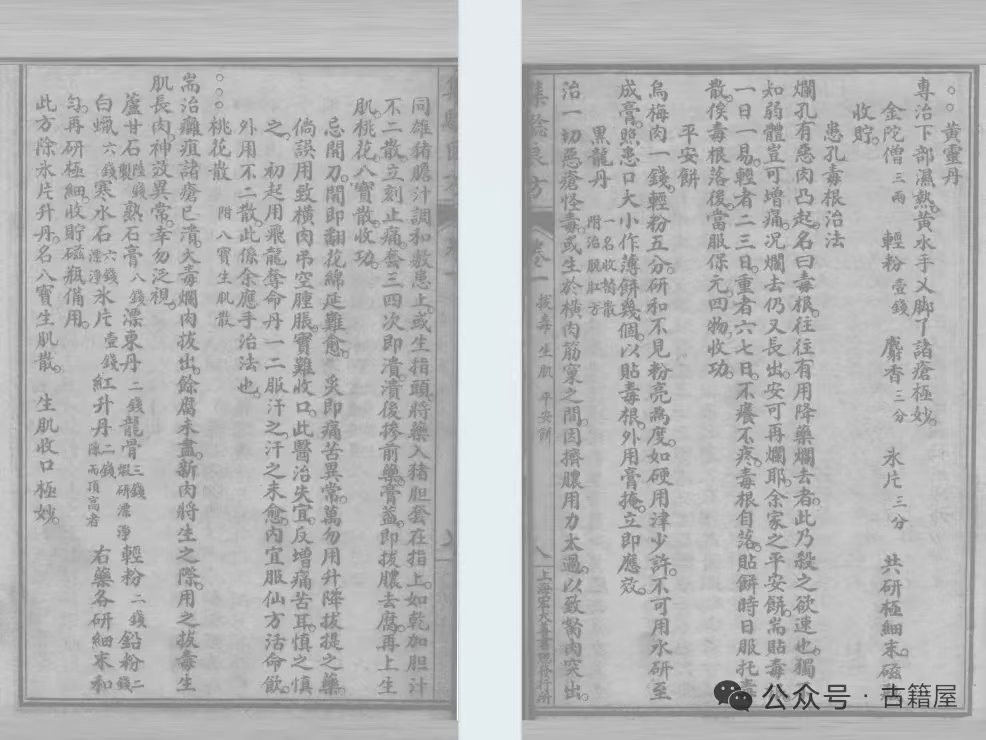 黃靈丹
專治下部濕熱黃水手乂脚丫諸瘡極妙。
金陀僧二兩 輕粉壹錢 麝香三分 氷片三分 共研極細末。磁瓶
收貯。
患孔毒根治法
爛孔有惡肉凸起。名曰毒根。往往有用降藥爛去者。此乃殺之欲速也。獨不
知弱體豈可增痛。况爛去仍又長出。安可再爛耶。余家之平安餅。耑貼毒根。
一日一易。輕者二三日。重者六七日。不癢不疼。毒根自落。貼餅時日服托毒
散。俟毒根落後。當服保元四物。收功。
平安餅
烏梅肉一錢。輕粉五分。研和不見粉亮為度。如硬用津少許。不可用水研至
成膏。照患口大小作薄餅幾個。以貼毒根。外用膏掩。立即應效。
黑龍丹 一名收胬散 附治脫肛方
治一切惡瘡怪毒。或生於橫肉筋窠之間。因擠膿用力太過。以致胬肉突出。
集驗良方 卷一 拔毒 生肌 平安餅 八 上海宏大善書局發行所
同雄猪膽汁調和敷患上。或生指頭。將藥入猪胆套在指上。如乾加胆汁
不二散。立刻止痛。套三四次即潰。潰後摻前藥。膏蓋。即拔膿去腐。再上生
肌桃花八寶散收功。
忌開刀。開即翻花綿延難愈。灸即痛苦異常。萬勿用升降拔提之藥。
倘誤用致橫肉吊空腫脹。寶難收口。此醫治失宜。反增痛苦耳。慎之慎
之。 初起用飛龍奪命丹一二服汗之。汗之未愈。內宜服仙方活命飲。
外用不二散。此條余應手治法也。
桃花散 附八寶生肌散
耑治癰疽諸瘡已潰。大毒爛肉拔出。餘腐未盡。新肉將生之際。用之拔毒生
肌長肉。神效異常。幸勿泛視。
蘆甘石陸錢製 熟石膏八錢 漂東丹二錢 龍骨三錢煅研漂淨 輕粉二錢 鉛粉二錢
白蠟六錢 寒水石六錢漂淨 氷片壹錢 紅升丹二錢陳而頂高者 右藥各研細末和
勻。再研極細。收貯磁瓶備用。
此方除氷片升丹。名八寶生肌散。 生肌收口極妙。
公众号 · 古籍屋